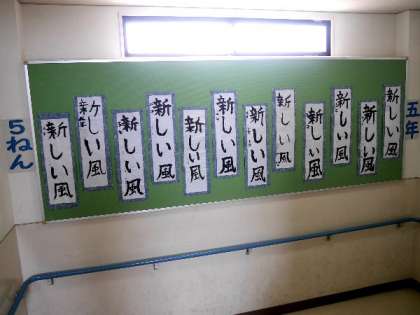 5ねん
新しい風
新しい風
新しい風
新しい風
新しい風
新しい風
新しい風
新しい風
新しい風
新しい風
新しい風
新しい風
五年